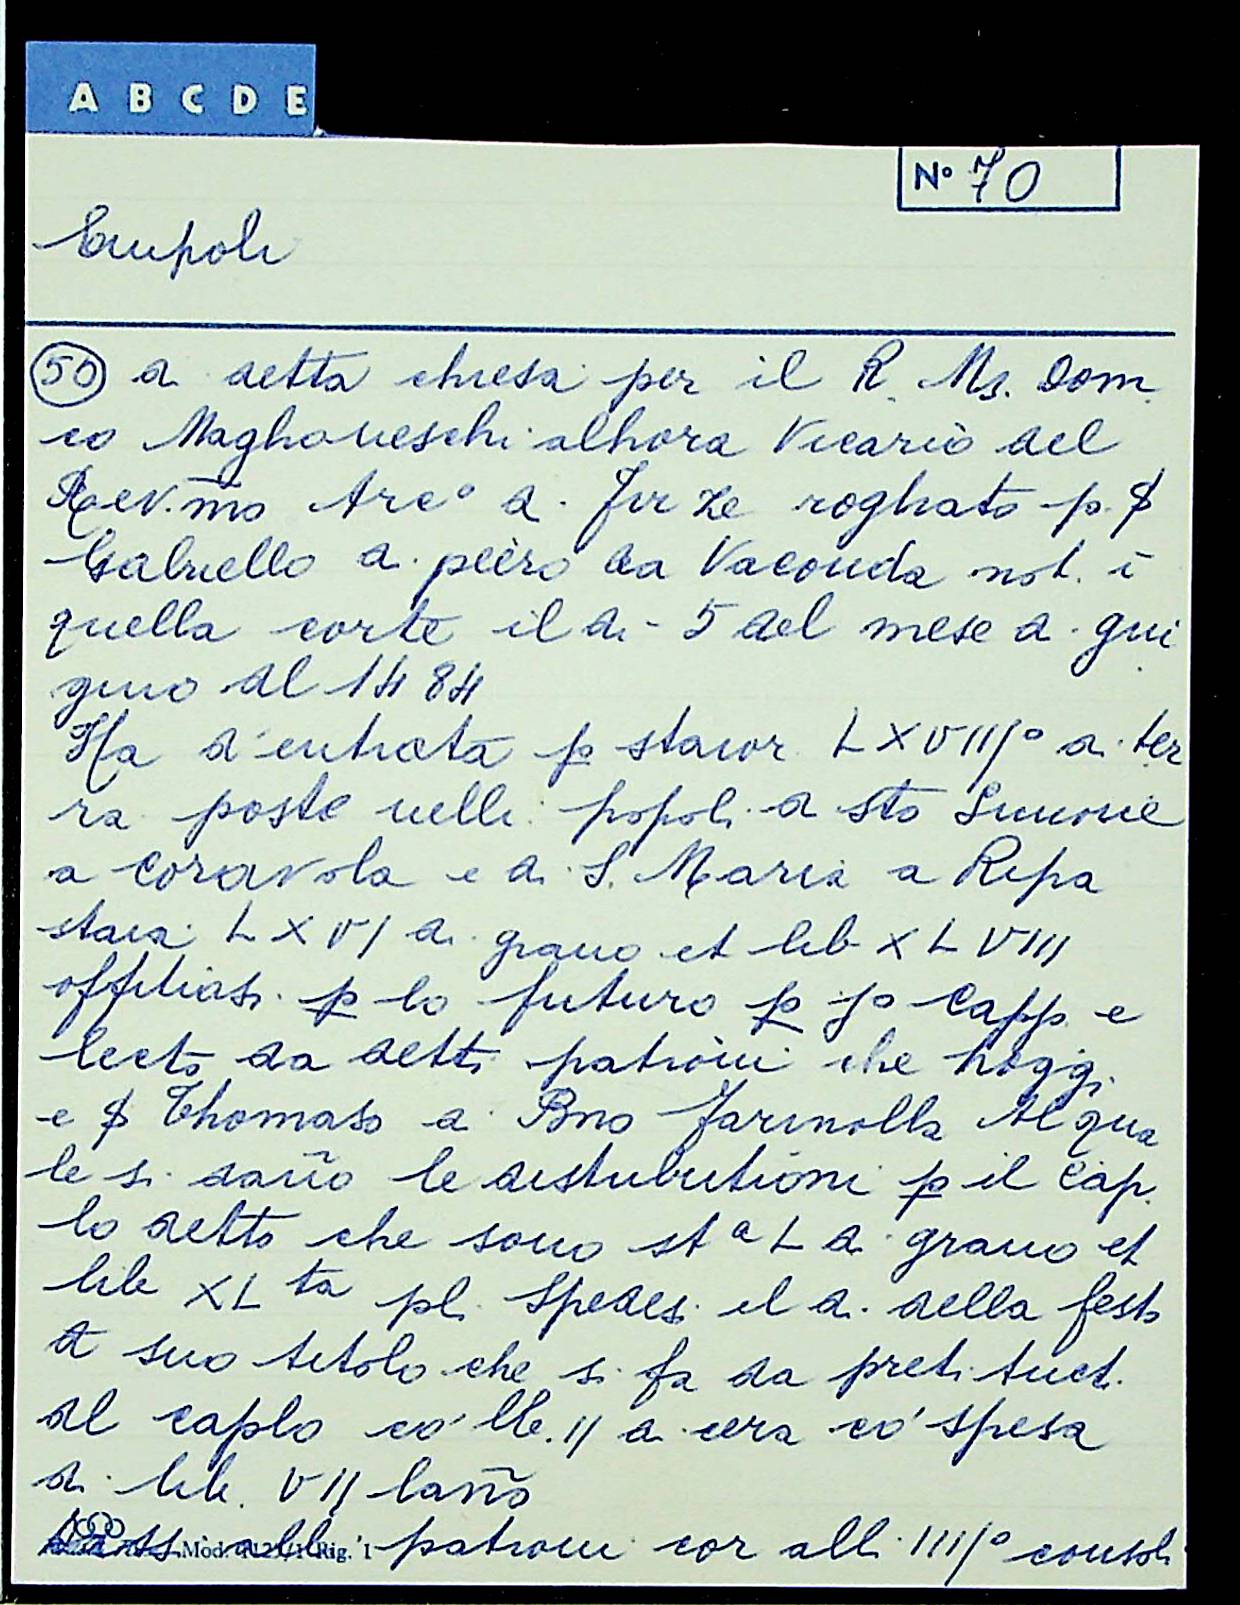 A B C D E
N° 70
Empoli
50 a detta chiesa per il R. Ms. Dom
co Maghoneschi alhora Vicario del
Rev.mo Arc° di Firze roghato p. $
Gabriello di piero da Vaconda not. ī
quella corte il di - 5 del mese di giu
gnio del 1484
Ha d'entrata p staior LXVIII° di ter
ra poste nelli popoli di sto Simone
a Coravola e di S. Maria a Ripa
staia LXVI di grano et lib XLVIII
offitiasi p lo futuro p j° Capp. e
lecto da detti patroni che hoggi
e $ Thomaso di Bno Farinolla Al qua
le si dañ̃o le distributioni p il Cap.
lo detto che sono stª L di grano et
lib XL ta pl. Spedesi il di della festa
di suo titolo che si fa da preti tucti
del caplo co' lib. II di cera co' spesa
di lib. VII lañ̃o
Mod. Rig. 1 alli patroni cor alli IIII° consoli